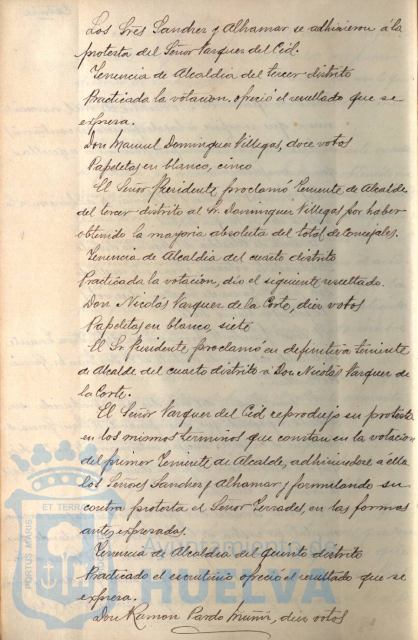 Los Sres Sanchez y Alhamar se adhirieron á la
protesta del Señor Vazquez del Cid.
Tenencia de Alcaldia del tercer distrito
Practicada la votacion, ofreció el resultado que se
expresa.
Don Manuel Dominguez Villegas, doce votos
Papeletas en blanco, cinco
El Señor Presidente proclamó Teniente de Alcalde
del tercer distrito al Sr. Dominguez Villegas por haber
obtenido la mayoria absoluta del total de Concejales.
Tenencia de Alcaldia del cuarto distrito
Practicada la votacion, dio el siguiente resultado.
Don Nicolás Vazquez de la Corte, diez votos
Papeletas en blanco, siete
El Sr. Presidente proclamó en definitiva teniente
de Alcalde del cuarto distrito á Don Nicolás Vazquez de
la Corte.
El Señor Vazquez del Cid reprodujo su protesta
en los mismos terminos que constan en la votacion
del primer Teniente de Alcalde, adhiriendose á ella
los Señores Sanchez y Alhamar y formulando su
contra protesta el Señor Terrades, en las formas
antes expresadas.
Tenencia de Alcaldia del quinto distrito
Practicado el escrutinio ofreció el resultado que se
expresa.
Don Ramon Pardo Muñiz, diez votos
PORTUS MARIS ET TERRAE
Ayuntamiento de
HUELVA